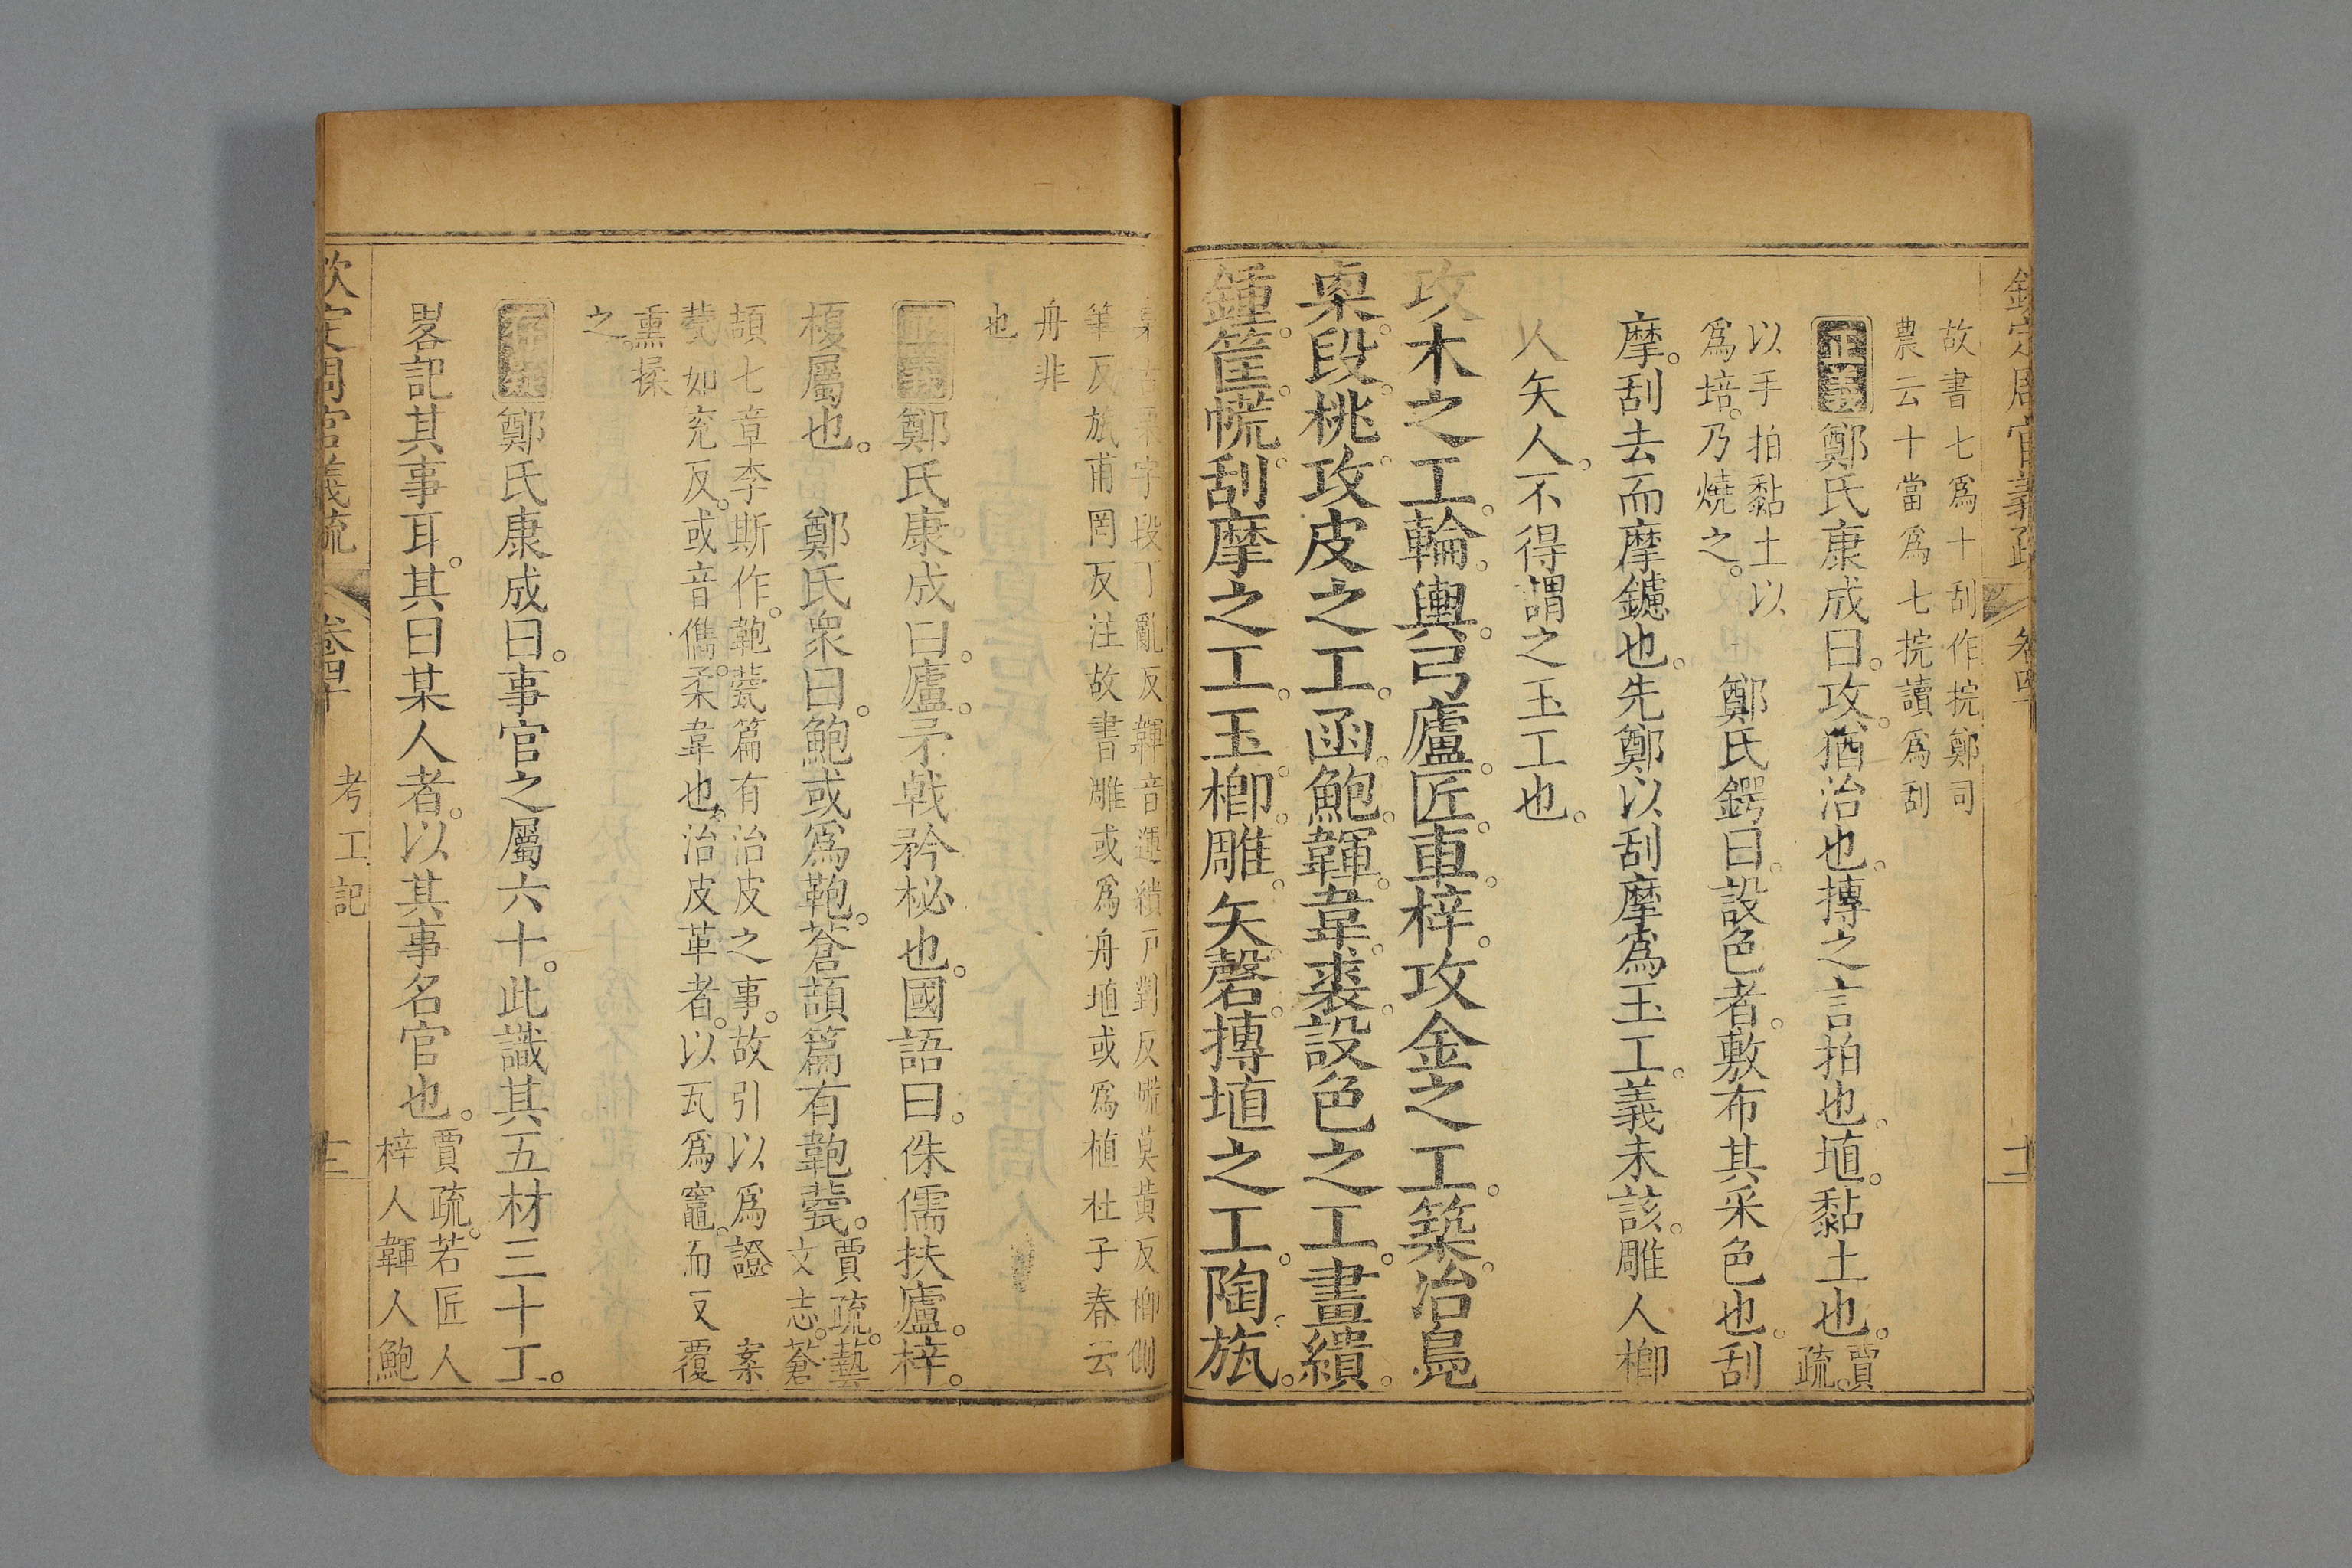 欽定周官義疏 卷四十 十二
故書七爲十刮作捖鄭司
農云十當爲七捖讀爲刮
正義鄭氏康成曰。攻。猶治也。摶之言拍也。埴。黏土也。賈
疏。
以手拍黏土以
爲培。乃燒之。
鄭氏鍔曰。設色者。敷布其采色也。刮
摩。刮去而摩鑢也。先鄭以刮摩爲玉工。義未該。雕人櫛
人矢人。不得謂之玉工也。
攻木之工。輪。輿。弓。廬。匠。車。梓。攻金之工。築。冶鳧
㮚。段。桃。攻皮之工。函。鮑。韗。韋。裘。設色之工。畫繢。
鍾。筐。㡛。刮摩之工。玉。櫛。雕。矢。磬。摶埴之工。陶。瓬。
㮚古栗字段丁亂反韗音運繢戸對反㡛莫黃反櫛側
筆反瓬甫罔反注故書雕或爲舟埴或爲植杜子春云
舟非
也
正義鄭氏康成曰。廬。矛戟矜柲也。國語曰。侏儒扶廬。梓。
榎屬也。 鄭氏衆曰。鮑或爲鞄。蒼頡篇有鞄㼱。
賈疏。藝
文志。蒼
頡七章李斯作。鞄㼱篇。有治皮之事。故引以爲證 案
㼱如兖反。或音儁。柔韋也。治皮革者。以瓦爲竈。而反覆
熏揉
之。
鄭氏康成曰。事官之屬六十。此識其五材三十工。
畧記其事耳。其曰某人者。以其事名官也。
賈疏。若匠人
梓人韗人鮑
欽定周官義疏 卷四十 考工記